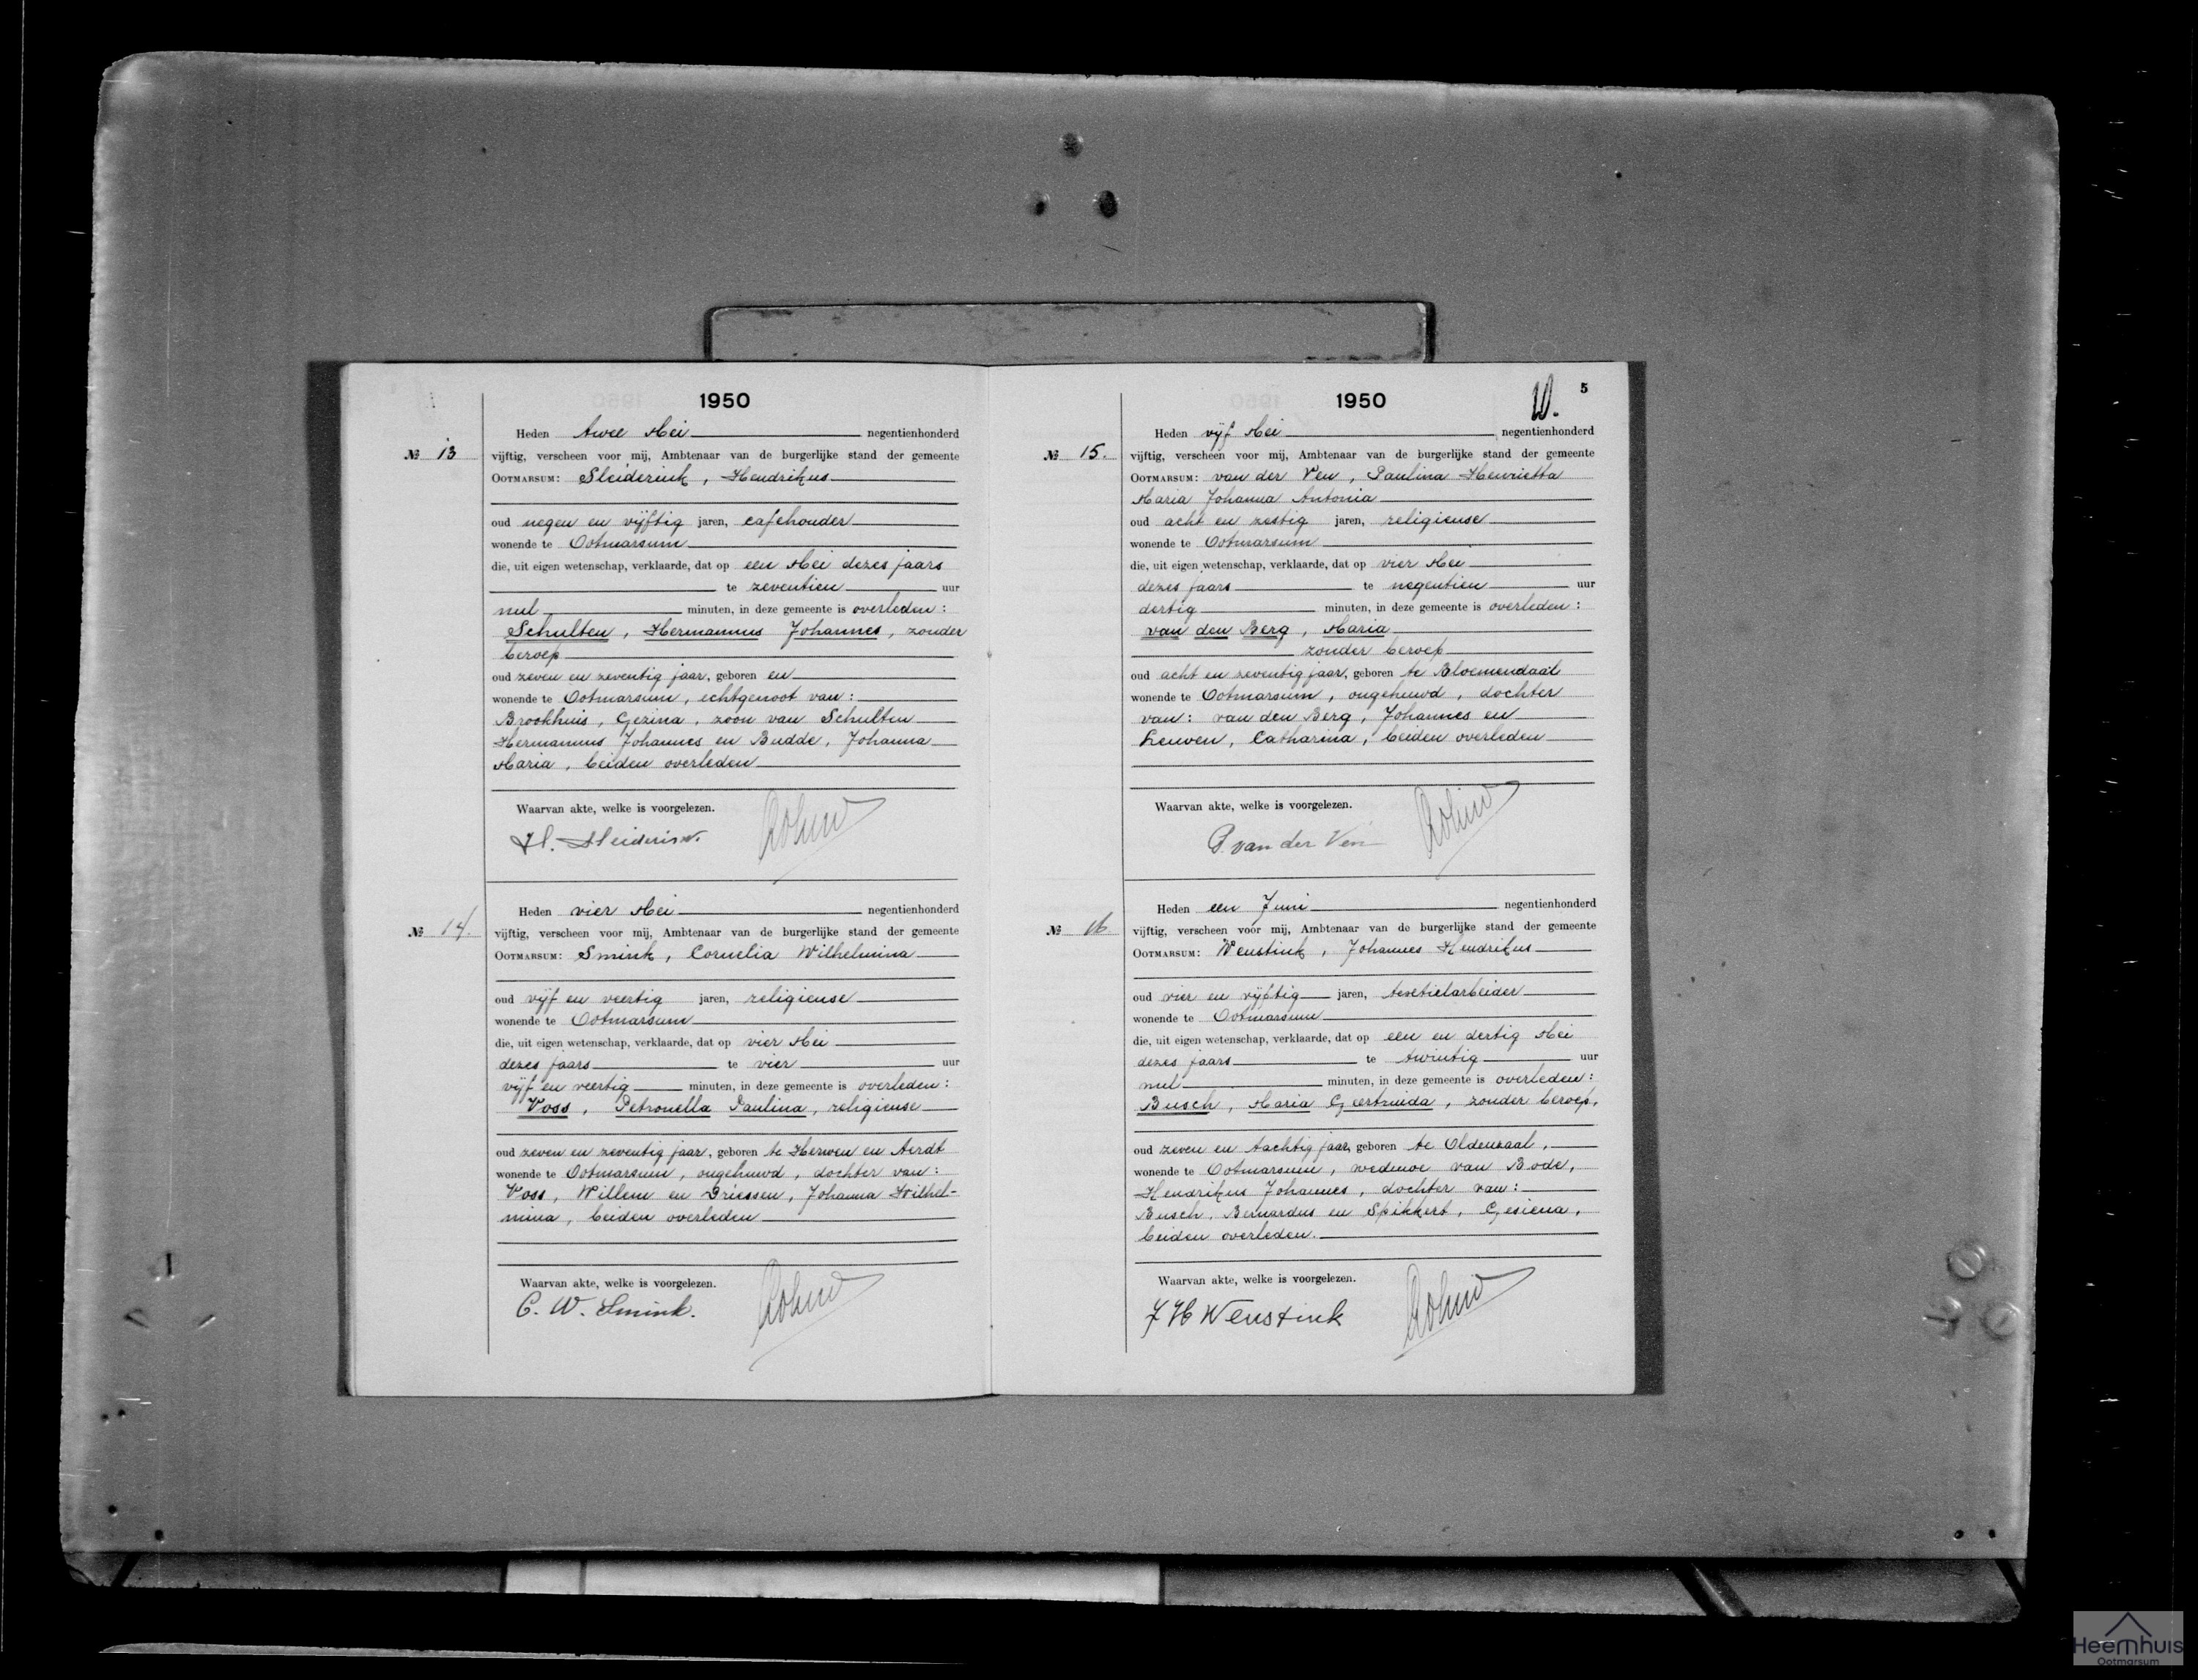 1950
Heden twee Mei negentienhonderd
№ 13 vijftig, verscheen voor mij, Ambtenaar van de burgerlijke stand der gemeente
OOTMARSUM: Sleiderink, Hendrikus
oud negen en vijftig jaren, cafehouder
wonende te Ootmarsum
die, uit eigen wetenschap, verklaarde, dat op een Mei dezes jaars
te zeventien uur
nul minuten, in deze gemeente is overleden:
Schulten, Hermannus Johannes, zonder
beroep
oud zeven en zeventig jaar, geboren en
wonende te Ootmarsum, echtgenoot van:
Brookhuis, Gezina, zoon van Schulten
Hermannus Johannes en Budde, Johanna
Maria, beiden overleden
Waarvan akte, welke is voorgelezen.
Heden vier Mei negentienhonderd
№ 14. vijftig, verscheen voor mij, Ambtenaar van de burgerlijke stand der gemeente
OOTMARSUM: Smink, Cornelia Wilhelmina
oud vijf en veertig jaren, religieuse
wonende te Ootmarsum
die, uit eigen wetenschap, verklaarde, dat op vier Mei
dezes jaars te vier uur
vijf en veertig minuten, in deze gemeente is overleden:
Voss, Petronella Paulina, religieuse
oud zeven en zeventig jaar, geboren te Herwen en Aerdt
wonende te Ootmarsum, ongehuwd, dochter van:
Voss, Willem en Driessen, Johanna Wilhel-
mina, beiden overleden
Waarvan akte, welke is voorgelezen.
C. W. Smink.
1950 10. 5
Heden vijf Mei negentienhonderd
№ 15. vijftig, verscheen voor mij, Ambtenaar van de burgerlijke stand der gemeente
OOTMARSUM: van der Ven, Paulina Henrietta
Maria Johanna Antonia
oud acht en zestig jaren, religieuse
wonende te Ootmarsum
die, uit eigen wetenschap, verklaarde, dat op vier Mei
dezes jaars te negentien uur
dertig minuten, in deze gemeente is overleden:
van den Berg, Maria
zonder beroep
oud acht en zeventig jaar, geboren te Bloemendaal
wonende te Ootmarsum, ongehuwd, dochter
van: van den Berg, Johannes en
Leuven, Catharina, beiden overleden
Waarvan akte, welke is voorgelezen.
P. van der Ven
Heden een Juni negentienhonderd
№ 16. vijftig, verscheen voor mij, Ambtenaar van de burgerlijke stand der gemeente
OOTMARSUM: Wenstink, Johannes Hendrikus
oud vier en vijftig jaren, textielarbeider
wonende te Ootmarsum
die, uit eigen wetenschap, verklaarde, dat op een en dertig Mei
dezes jaars te twintig uur
nul minuten, in deze gemeente is overleden:
Busch, Maria Geertruida, zonder beroep,
oud zeven en tachtig jaar, geboren te Oldenzaal,
wonende te Ootmarsum, weduwe van Bode,
Hendrikus Johannes, dochter van:
Busch, Bernardus en Spikkert, Gesiena,
beiden overleden.
Waarvan akte, welke is voorgelezen.
J H Wenstink
Heemhuis
Ootmarsum